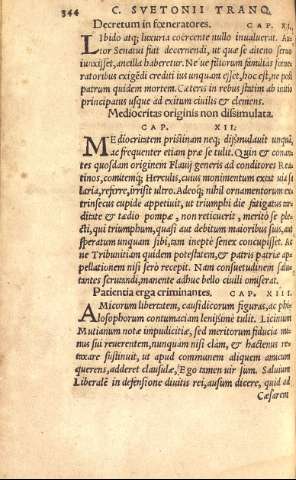 344 C. SVETONII TRANQ.
Decretum in fœneratores. CAP. XI.
LIbido atq; luxuria coercente nullo inualuerat. Au-
tor Senatui fuit decernendi, ut quæ se alieno seruo
iunxisset, ancilla haberetur. Ne ue filiorum familias fœne-
ratoribus exigēdi crediti ius unquam esset, hoc est, ne post
patrum quidem mortem. Cæteris in rebus statim ab initio
principatus usque ad exitum ciuilis & clemens.
Mediocritas originis non dissimulata.
CAP. XII.
MEdiocritatem pristinam neq; dissimulauit unquā,
ac frequenter etiam præ se tulit. Quin & conan-
tes quosdam originem Flauij generis ad conditores Rea
tinos, comitemq; Herculis, cuius monimentum extat uia sa
laria, referre, irrisit ultro. Adeoq; nihil ornamentorum ex
trinsecus cupide appetiuit, ut triumphi die fatigatus tar
ditate & tædio pompæ, non reticuerit, merito se ple-
cti, qui triumphum, quasi aut debitum maioribus suis, aut
speratum unquam sibi, tam inepte senex concupisset. Ac
ne Tribunitiam quidem potestatem, & patris patriæ ap-
pellationem nisi sero recepit. Nam consuetudinem salu-
tantes scrutandi, manente adhuc bello ciuili omiserat.
Patientia erga criminantes. CAP. XIII.
AMicorum libertatem, causidicorum figuras, ac phi
losophorum contumaciam lenissime tulit. Licinium
Mutianum notæ impudicitiæ, sed meritorum fiducia mi-
nus sui reuerentem, nunquam nisi clam, & hactenus re-
taxare sustinuit, ut apud communem aliquem amicum
querens, adderet clausulæ, Ego tamen uir sum. Saluium
Liberalē in defensione diuitis rei, ausum dicere, quid ad
Cæsarem